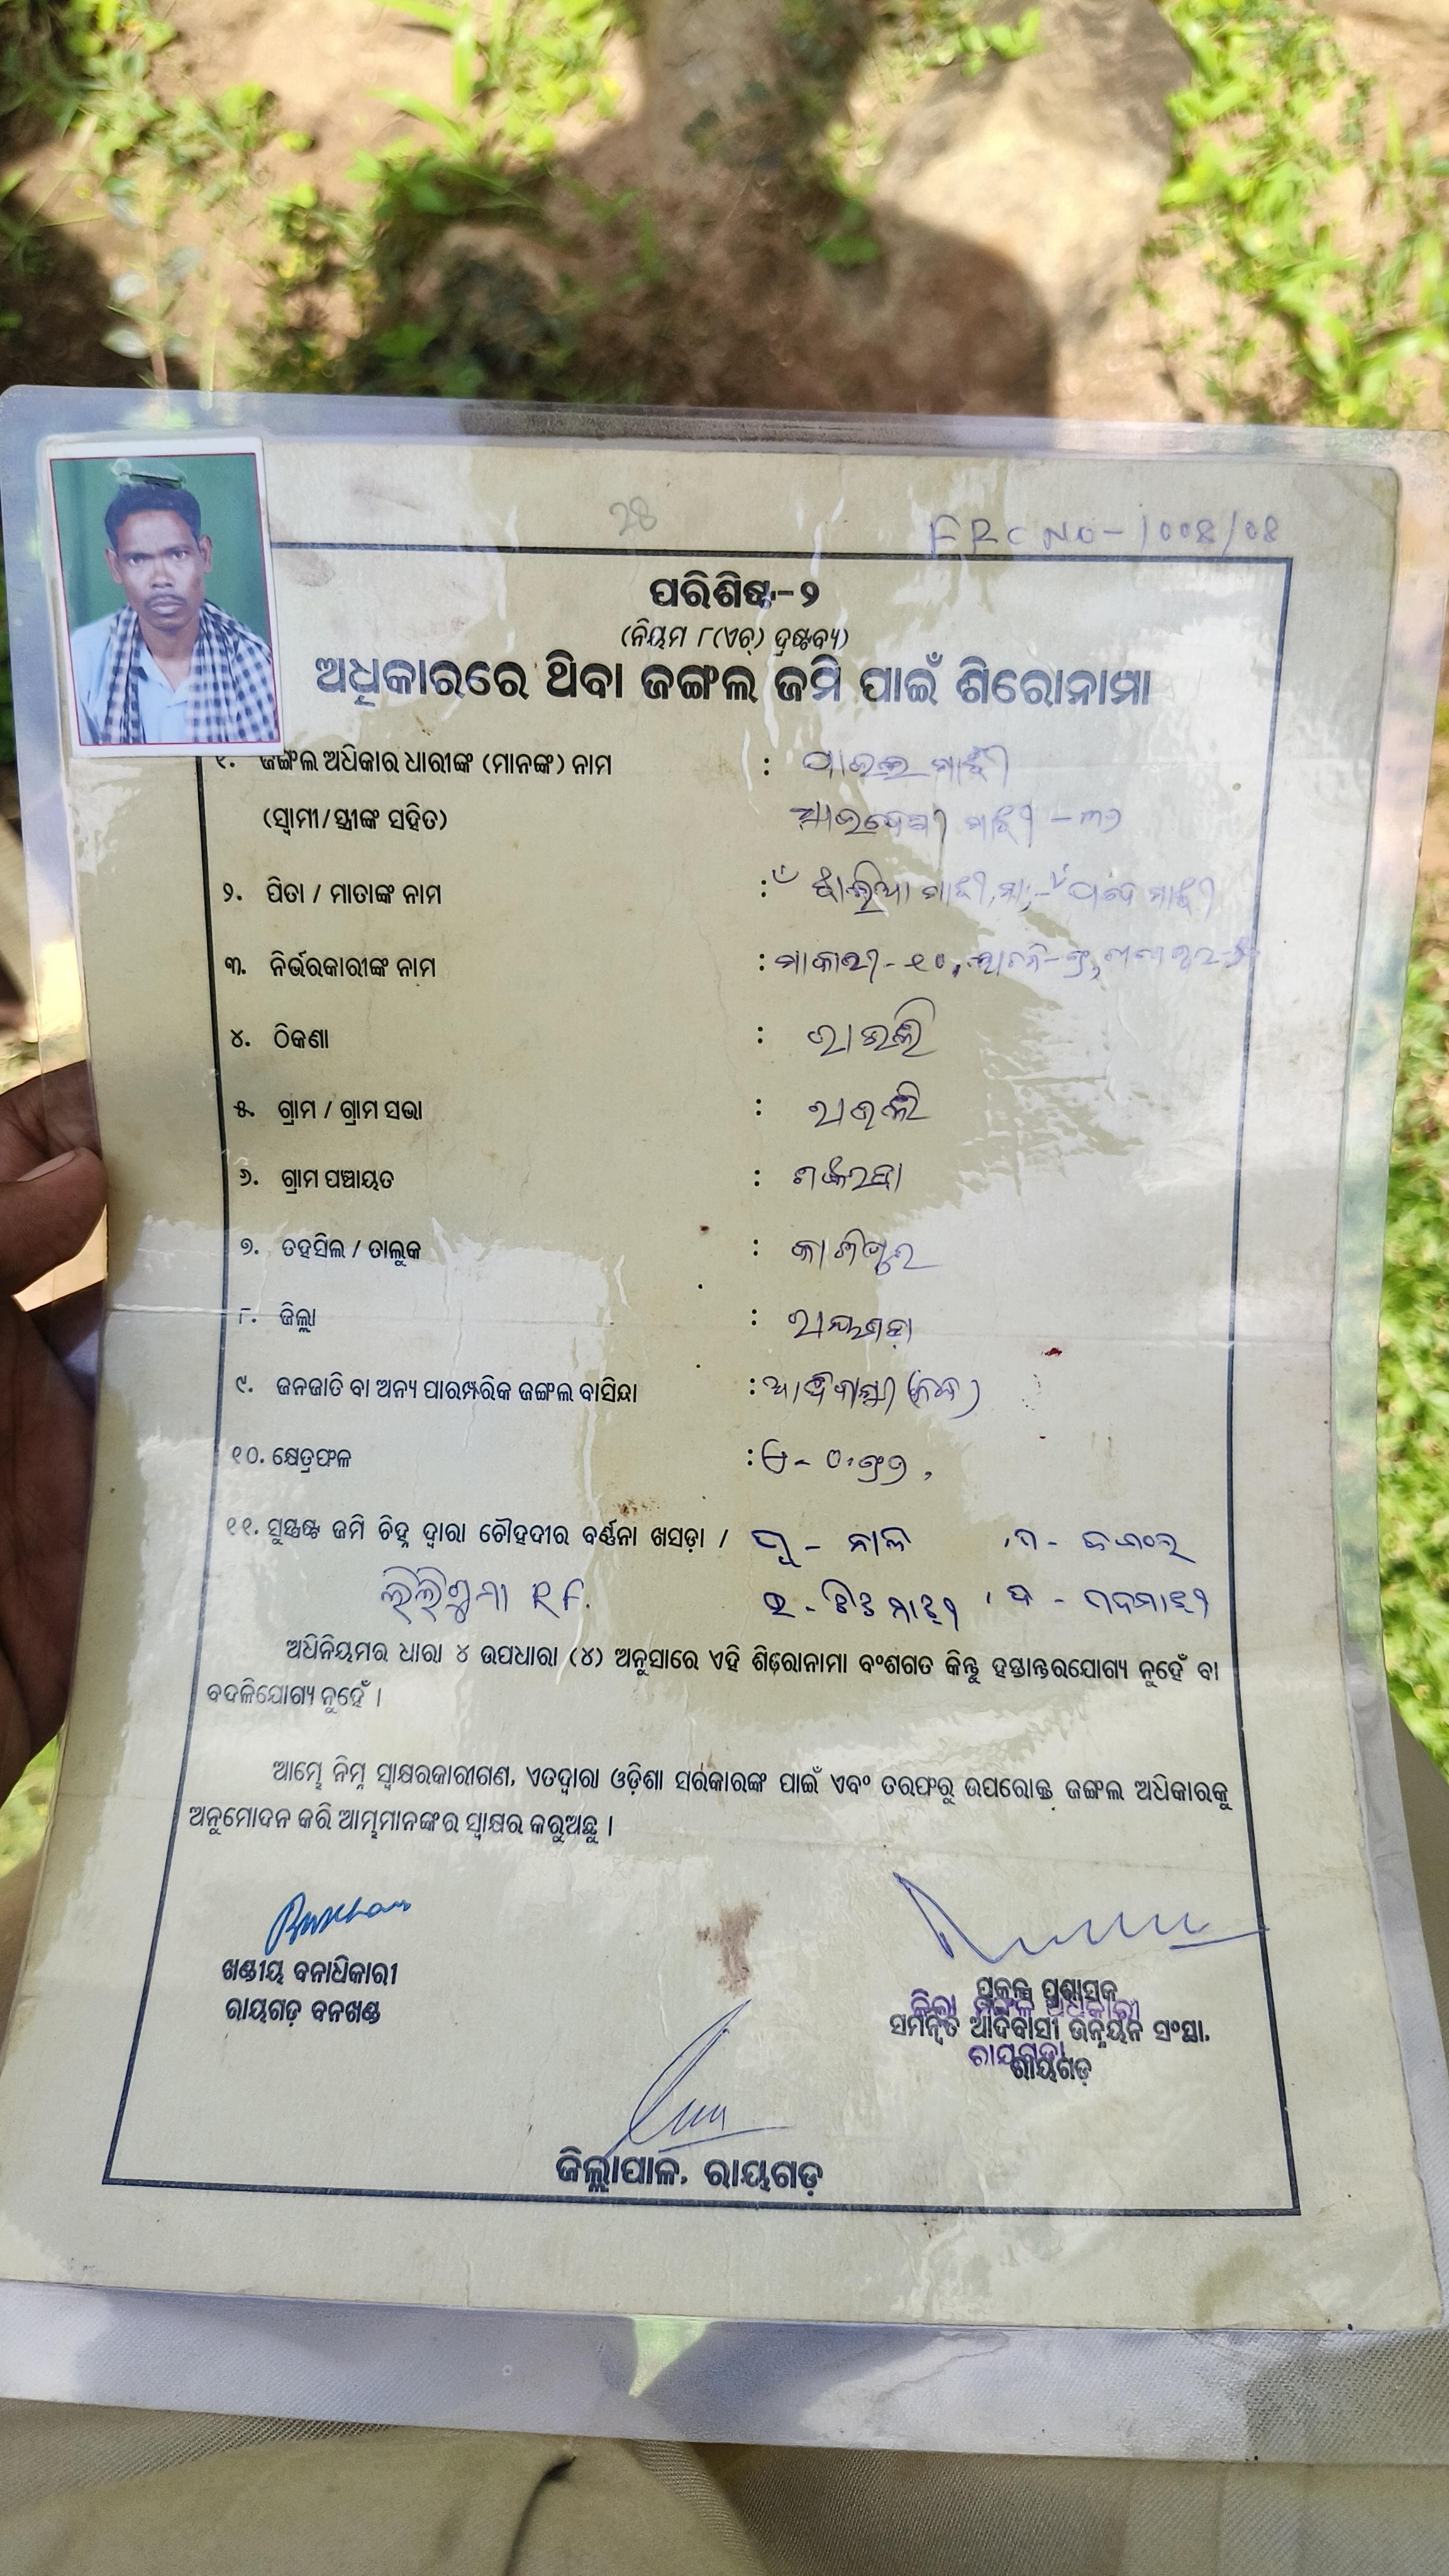 28
FRC NO-1008/08
ପରିଶିଷ୍ଟ-୨
(ନିୟମ ୮(ଏଚ୍) ଦ୍ରଷ୍ଟବ୍ୟ)
ଅଧିକାରରେ ଥିବା ଜଙ୍ଗଲ ଜମି ପାଇଁ ଶିରୋନାମା
୧. ଜଙ୍ଗଲ ଅଧିକାର ଧାରୀଙ୍କ (ମାନଙ୍କ) ନାମ : ମାଝୀ
(ସ୍ୱାମୀ/ସ୍ତ୍ରୀଙ୍କ ସହିତ) ମାଝୀ - ୩୬
୨. ପିତା / ମାତାଙ୍କ ନାମ : ମାଝୀ, ମା:- ମାଝୀ
୩. ନିର୍ଭରକାରୀଙ୍କ ନାମ :
୪. ଠିକଣା : ରାଉଲି
୫. ଗ୍ରାମ / ଗ୍ରାମ ସଭା : ରାଉଲି
୬. ଗ୍ରାମ ପଞ୍ଚାୟତ :
୭. ତହସିଲ / ତାଲୁକ : କାଶୀପୁର
୮. ଜିଲ୍ଲା : ରାୟଗଡ଼ା
୯. ଜନଜାତି ବା ଅନ୍ୟ ପାରମ୍ପରିକ ଜଙ୍ଗଲ ବାସିନ୍ଦା : ଆଦିବାସୀ (କନ୍ଧ)
୧୦. କ୍ଷେତ୍ରଫଳ :
୧୧. ସୁସ୍ପଷ୍ଟ ଜମି ଚିହ୍ନ ଦ୍ୱାରା ଚୌହଦୀର ବର୍ଣ୍ଣନା ଖସଡ଼ା / ପୂ - ନାଳ
R.F. ଉ - ମାଝୀ , ଦ - ମାଝୀ
ଅଧିନିୟମର ଧାରା ୪ ଉପଧାରା (୪) ଅନୁସାରେ ଏହି ଶିରୋନାମା ବଂଶଗତ କିନ୍ତୁ ହସ୍ତାନ୍ତରଯୋଗ୍ୟ ନୁହେଁ ବା
ବଦଳିଯୋଗ୍ୟ ନୁହେଁ ।
ଆମ୍ଭେ ନିମ୍ନ ସ୍ୱାକ୍ଷରକାରୀଗଣ, ଏତଦ୍ୱାରା ଓଡ଼ିଶା ସରକାରଙ୍କ ପାଇଁ ଏବଂ ତରଫରୁ ଉପରୋକ୍ତ ଜଙ୍ଗଲ ଅଧିକାରକୁ
ଅନୁମୋଦନ କରି ଆମ୍ଭମାନଙ୍କର ସ୍ୱାକ୍ଷର କରୁଅଛୁ ।
ଖଣ୍ଡୀୟ ବନାଧିକାରୀ
ରାୟଗଡ଼ ବନଖଣ୍ଡ
ପ୍ରକଳ୍ପ ପ୍ରଶାସକ
ଜିଲ୍ଲା ମଙ୍ଗଳ ଅଧିକାରୀ
ସମନ୍ୱିତ ଆଦିବାସୀ ଉନ୍ନୟନ ସଂସ୍ଥା,
ରାୟଗଡ଼ା
ରାୟଗଡ଼
ଜିଲ୍ଲାପାଳ, ରାୟଗଡ଼